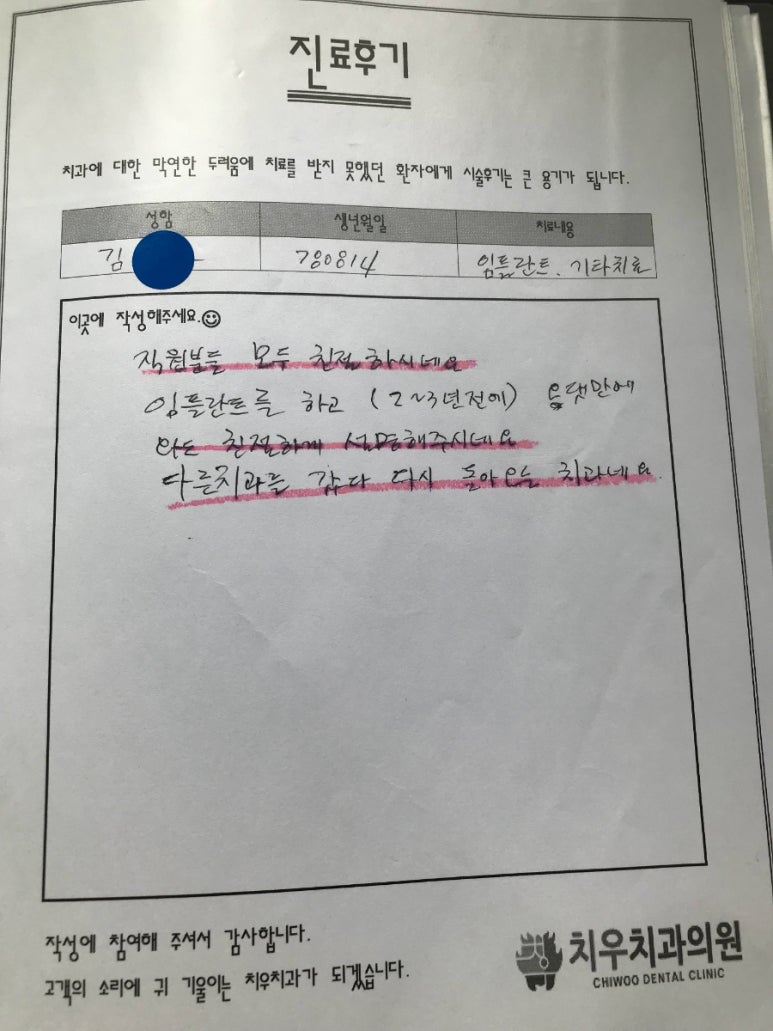 진료후기
치과에 대한 막연한 두려움에 치료를 받지 못했던 환자에게 시술후기는 큰 용기가 됩니다.
성함 생년월일 치료내용
김 780814 임플란트. 기타치료
이곳에 작성해주세요.
직원분들 모두 친절하시네요
임플란트를 하고 (2~3년전에) 오랫만에
와도 친절하게 설명해주시네요
다른치과를 갔다 다시 돌아오는 치과네요.
작성에 참여해 주셔서 감사합니다.
고객의 소리에 귀 기울이는 치우치과가 되겠습니다.
치우치과의원
CHIWOO DENTAL CLINIC